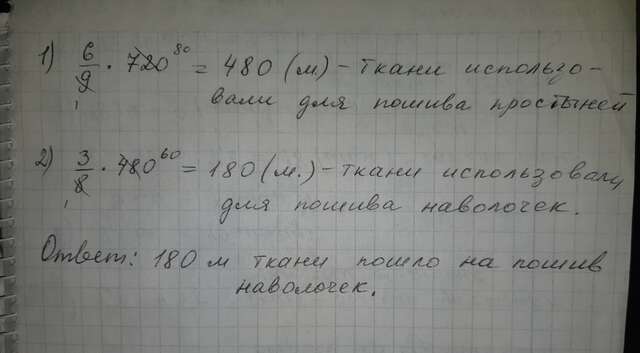 1) 6/9 · 720 80 = 480 (м) - ткани использо-
1
вали для пошива простыней
2) 3/8 · 480 60 = 180 (м.) - ткани использовали
1
для пошива наволочек.
Ответ: 180 м ткани пошло на пошив
наволочек.